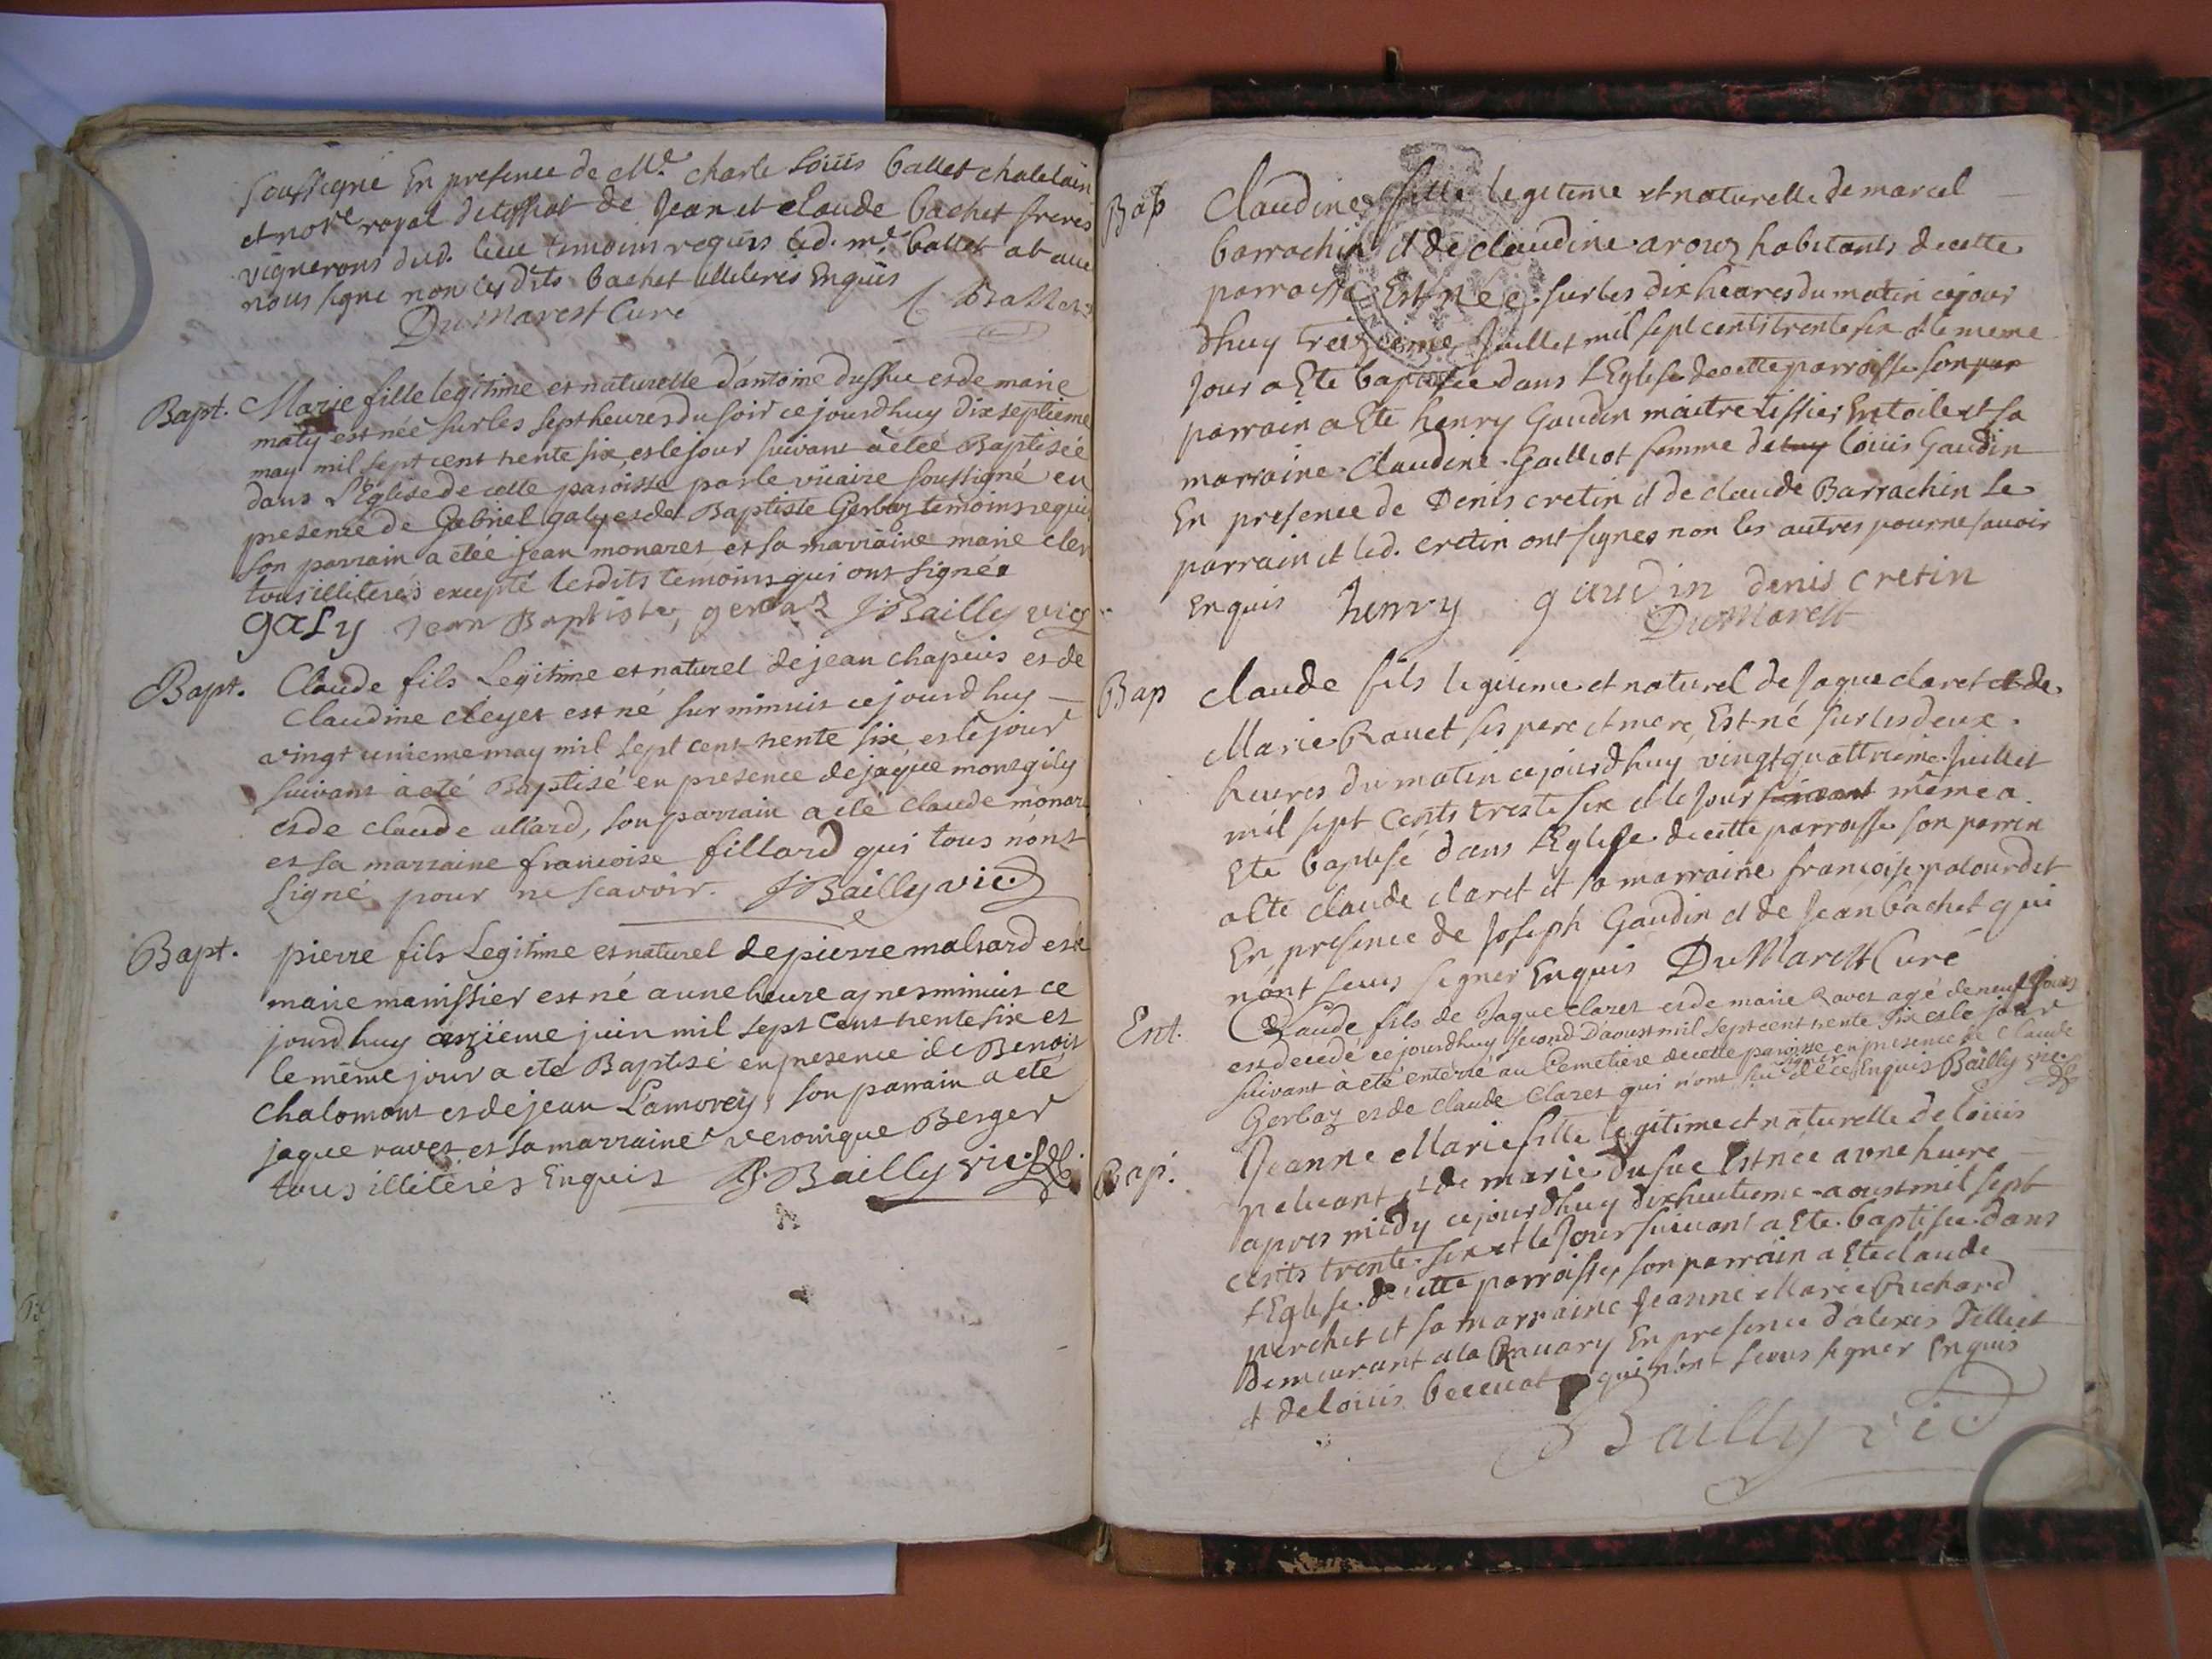 soussigné En presence de Mr. charle Loüis ballet chatelain
et note royal de de Jean et claude bachet freres
vignerons dud. lieu temoins requis led. me. ballet at avec
nous signé non les dits bachet illiterés Enquis
DuMarest Curé Ballet
Bapt. Marie fille legitime et naturelle d'antoine dussuc et de marie
maty est née sur les sept heures du soir ce jourdhuy dix septieme
may mil sept cent trente six et le jour suivant a étée Baptisée
dans L'Eglise de cette paroisse par le vicaire soussigné en
presence de Gabriel galy et de Baptiste Gerbaz temoins requis
son parrain a étée jean monaret et sa marraine marie cler
tous illiterés excepté lesdits temoins qui ont signé.
galy jean Baptiste gerbaz J: Bailly vic
Bapt. Claude fils Legitime et naturel de jean chapuis et de
Claudine cleyet est né sur minuit ce jourd huy
vingt unieme may mil sept cent trente six et le jour
suivant a eté Baptisé en presence de jaque montgily
et de claude allard, son parrain a eté claude monar
et sa marraine francoise fillard qui tous n'ont
signé pour ne scavoir. J: Bailly vic.
Bapt. pierre fils Legitime et naturel de pierre maltard et de
marie manissier est né a une heure apres minuit ce
jourd huy onzieme juin mil sept cent trente six et
le même jour a eté Baptisé en presence de Benoit
chalomont et de jean L'amorey, son parrain a eté
jaque ravet et sa marraine veronique Berger
tous illiterés Enquis J: Bailly vic.
Bap Claudine fille legitime et naturelle de marcel
barrachin et de claudine arouz habitants de cette
parroisse Est née sur les dix heures du matin ce jour
dhuy treizieme Juillet mil sept cents trente six et le meme
Jour a Eté baptisée dans l'Eglise de cette parroisse son par
parrain a Eté henry Gaudin maitre tissier En toile et sa
marraine Claudine Gailliot femme de luy loüis Gaudin
En presence de Denis cretin et de claude Barrachin Le
parrain et led. cretin ont signes non les autres pour ne savoir
Enquis henry gaudin denis cretin
DuMarest
Bap claude fils legitime et naturel de Jaque claret et de
Marie Ravet ses pere et mere, Est né sur les deux
heures du matin ce jourdhuy vingt quattrieme Juillet
mil sept cents trente six et le Jour suivant même a
Eté baptisé dans l'Eglise de cette parroisse son parrin
a Eté claude claret et sa marraine françoise palourdet
En presence de Joseph Gaudin et de Jean bachet qui
n'ont seus signer Enquis DuMarest Curé
Ent. Claude fils de Jaque claret et de marie Ravet agé de neuf jours
est decedé ce jourdhuy second D'aoust mil sept cent trente six et le jour
suivant à eté enterré au Cemetiere de cette paroisse en presence de Claude
Gerbaz et de claude Claret qui n'ont sü signer de ce Enquis Bailly vic.
Bap. Jeanne Marie fille legitime et naturelle de loüis
peluant et de marie dusuc Est née a une huere
apres midy ce jourdhuy dix huitieme aoust mil sept
cents trente six et le Jour suivant a Eté baptisée dans
l'Eglise de cette parroisse, son parrain a Eté claude
perchet et sa marraine Jeanne Marie Richard
demeurant a la En presence d'alexis Tilliet
et de loüis beccuat qui n'ont seus signer Enquis
J Bailly vic